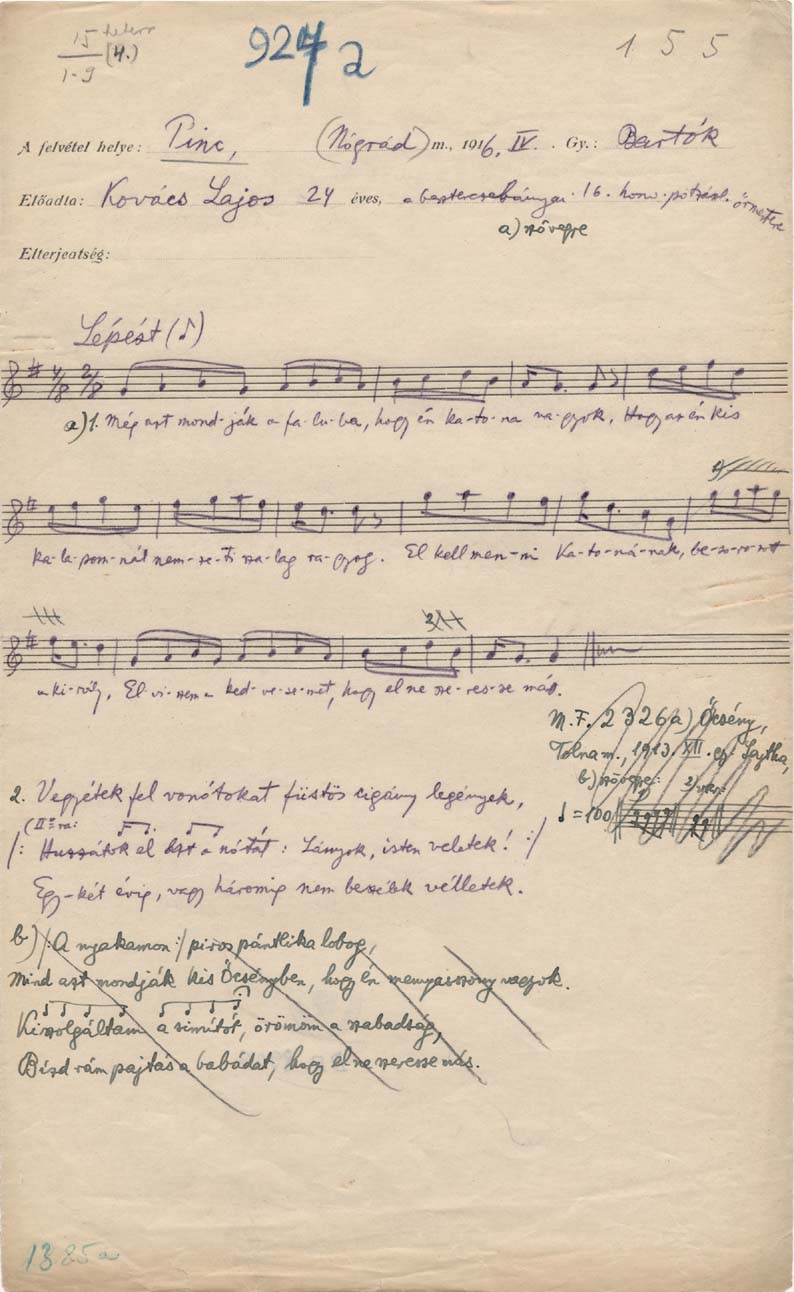 15
1-9 (4.)
924 a
155
A felvétel helye: Pinc, (Nógrád) m., 1916. IV. Gy.: Bartók
Előadta: Kovács Lajos 24 éves, a besztercebányai 16. honv. pótzászl. őrmestere
a) szövegre
Elterjedtség:
Lépést (♪)
a) 1. Még azt mond-ják a fa-lu-ba, hogy én ka-to-na va-gyok, Hogy az én kis
ka-la-pom-nál nem-ze-ti sza-lag ra-gyog. El kell men-ni Ka-to-ná-nak, be-so-ro-zott
a ki-rály, El-vi-szem a ked-ve-se-met, hogy el ne sze-res-se más.
M.F. 2326a) Őcsény,
Tolna m., 1913. XII.
b) szövegre:
♩=100
2. Vegyétek fel vonótokat füstös cigány legények,
(II-ra:
/: Huzzátok el azt a nótát: Lányok, isten veletek! :/
Egy-két évig, vagy háromig nem beszélek vélletek.
b) /: A nyakamon :/ piros pántlika lobog,
Mind azt mondják kis Őcsényben, hogy én menyasszony vagyok.
Kiszolgáltam a simítót, örömöm a szabadság,
Bízd rám pajtás a babádat, hogy el ne szeresse más.
1385a